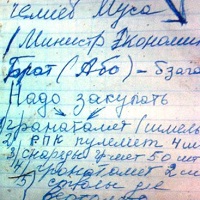 челиев Муса
(Министр Экономи
Брат (Або) - Бзаго
Надо закупать
1) гранатамет (шмель
2) РПК пулемет 4 ш
3) снаряды 9 мест 50 шт
гранатамет 2 ш
5)